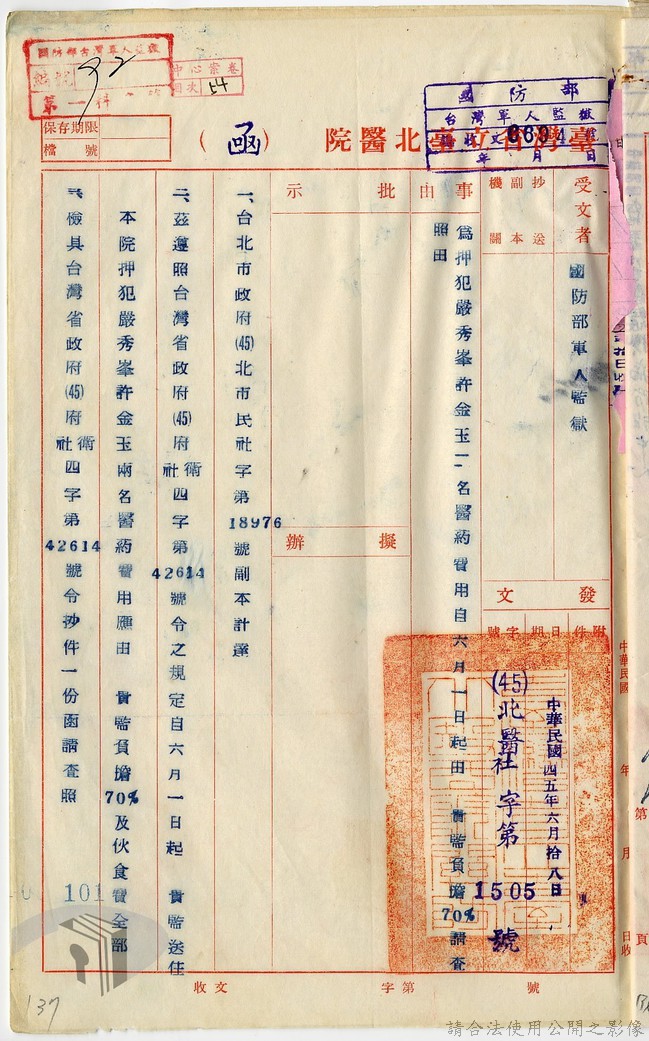 國防部台灣軍人監獄
92
第一科
中心案卷
目次 54
保存期限
檔號
國防部
台灣軍人監獄
6604
年 月 日
臺灣省立臺北醫院
（函）
受文者
國防部軍人監獄
抄送
副本
機關
事由
為押犯嚴秀峯許金玉二名醫葯費用自六月一日起由 貴監負擔70%請查
照由
批示
擬辦
發文
附件
日期
字號
中華民國四五年六月拾八日
(45)北醫社字第1505號
一、台北市政府(45)北市民社字第18976號副本計達
二、茲遵照台灣省政府(45)府衛社四字第42614號令之規定自六月一日起 貴監送住
本院押犯嚴秀峯許金玉兩名醫葯費用應由 貴監負擔70%及伙食費全部
三、檢具台灣省政府(45)府衛社四字第42614號令抄件一份函請查照
101
收文 字第 號
137
中華民國 年 月 日收
第 頁
請合法使用公開之影像